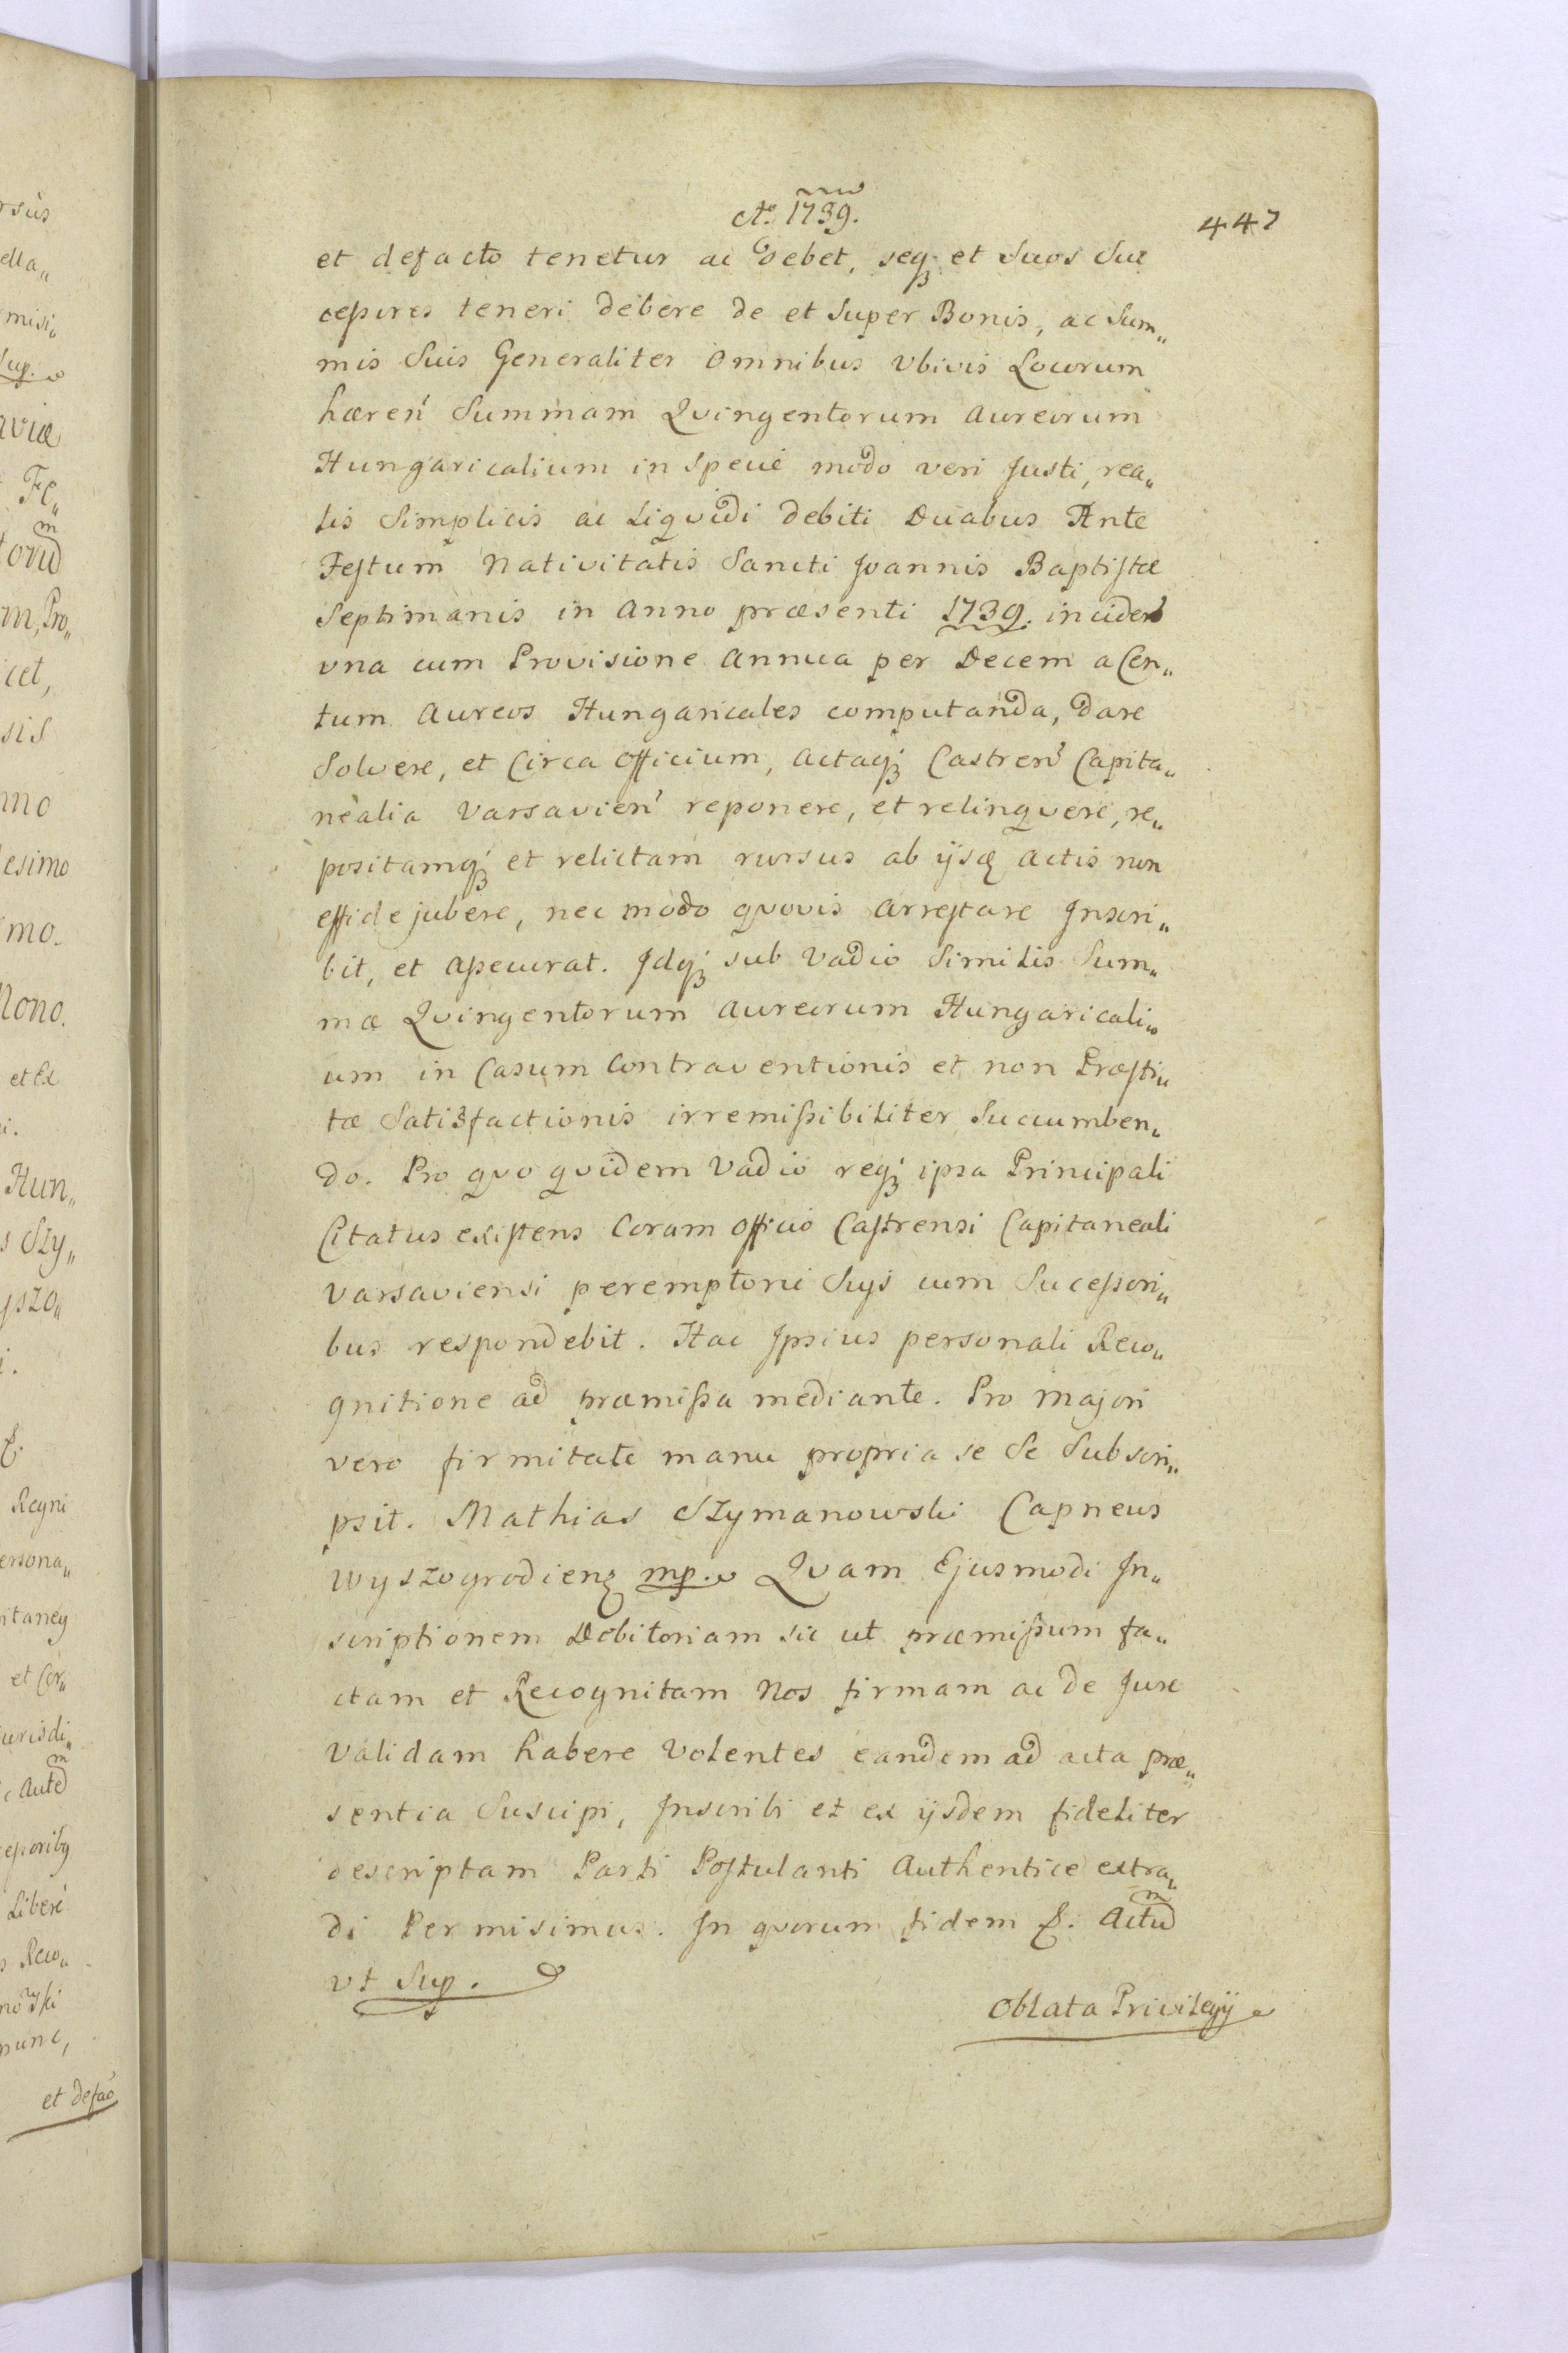 Ao. 1739.
447
et defacto tenetur ac debet, seq; et Suos Suc
cessores teneri debere de et Super Bonis, ac Sum„
mis Suis Generaliter Omnibus Vbivis Locorum
hæren' Summam Qvingentorum Aureorum
Hungaricalium in Specie modo veri Justi, rea„
lis Simplicis ac Liqvidi debiti Duabus Ante
Festum Nativitatis Sancti Joannis Baptistæ
Septimanis in Anno præsenti 1739. inciden'
vna cum Provisione Annua per Decem a Cen„
tum Aureos Hungaricales computanda, dare
Solvere, et Circa Officium, Actaq; Castren' Capita„
nealia Varsavien' reponere, et relinqvere, re„
positamq; et relictam rursus ab ijsd actis non
effidejubere, nec modo qvovis Arrestare Inscri„
bit, et Assecurat. Idq; sub Vadio Similis Sum„
mæ Qvingentorum Aureorum Hungaricali„
um in Casum Contraventionis et non Præsti„
tæ Satisfactionis irremissibiliter Succumben„
do. Pro qvo qvidem Vadio req; ipsa Principali
Citatus existens Coram Officio Castrensi Capitaneali
Varsaviensi peremptorie Suis cum Sucessori„
bus respondebit. Hac Ipsius personali Reco„
gnitione ad præmissa mediante. Pro Majori
vero firmitate manu propria se Se Subscri„
psit. Mathias Szymanowski Capneus
Wyszogrodien; mp. Qvam Ejusmodi In„
scriptionem Debitoriam sic ut præmissum fa„
ctam et Recognitam Nos firmam ac de Jure
Validam habere Volentes eandem ad acta præ„
sentia Suscipi, Inscribi et ex ijsdem fideliter
descriptam Parti Postulanti Authentice extra„
di Permisimus. In qvorum fidem &. Actum
vt Sup.
Oblata Privilegij
rsus
ella„
misi„
Sup.
aviæ
Fe„
m, Pro„
icet,
sis
nno
esimo
mo.
Nono.
et Ex
i.
Hun„
s Szy„
yszo„
i.
&.
Regni
ersona„
itaney
et Cor„
urisdi„
c Autem
cessoribq
Libere
s Reco„
nunc,
et defac